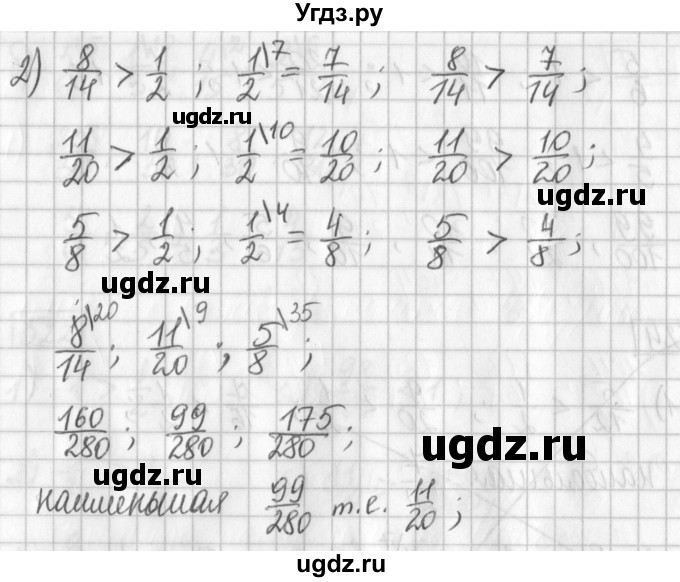 Угдз.ру
2) 8/14 > 1/2 ; 1\7/2 = 7/14 ; 8/14 > 7/14 ;
ugdz.ru
11/20 > 1/2 ; 1\10/2 = 10/20 ; 11/20 > 10/20 ;
ugdz.ru
5/8 > 1/2 ; 1\4/2 = 4/8 ; 5/8 > 4/8 ;
ugdz.ru
8\20/14 ; 11\9/20 ; 5\35/8 ;
160/280 ; 99/280 ; 175/280 ;
ugdz.ru
ugdz.ru
наименьшая 99/280 т.е. 11/20 ;
ugdz.ru